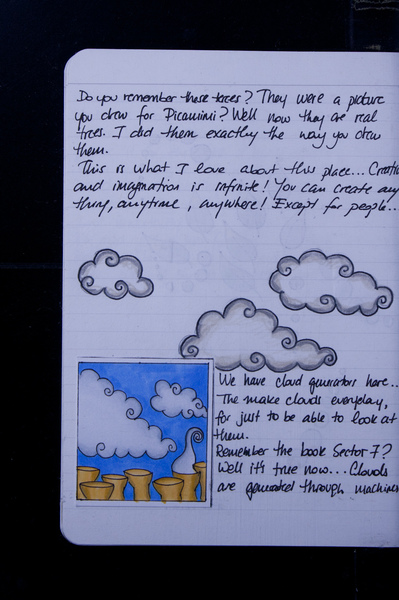 Do you remember these trees? They were a picture
you drew for Picamini? Well now they are real
trees. I did them exactly the way you drew
them.
This is what I love about this place... Creati
and imagination is infinite! You can create any
thing, anytime, anywhere! Except for people...
We have cloud generators here..
The make clouds everyday,
for just to be able to look at
them.
Remember the book Sector 7?
Well it's true now... Clouds
are generated through machines